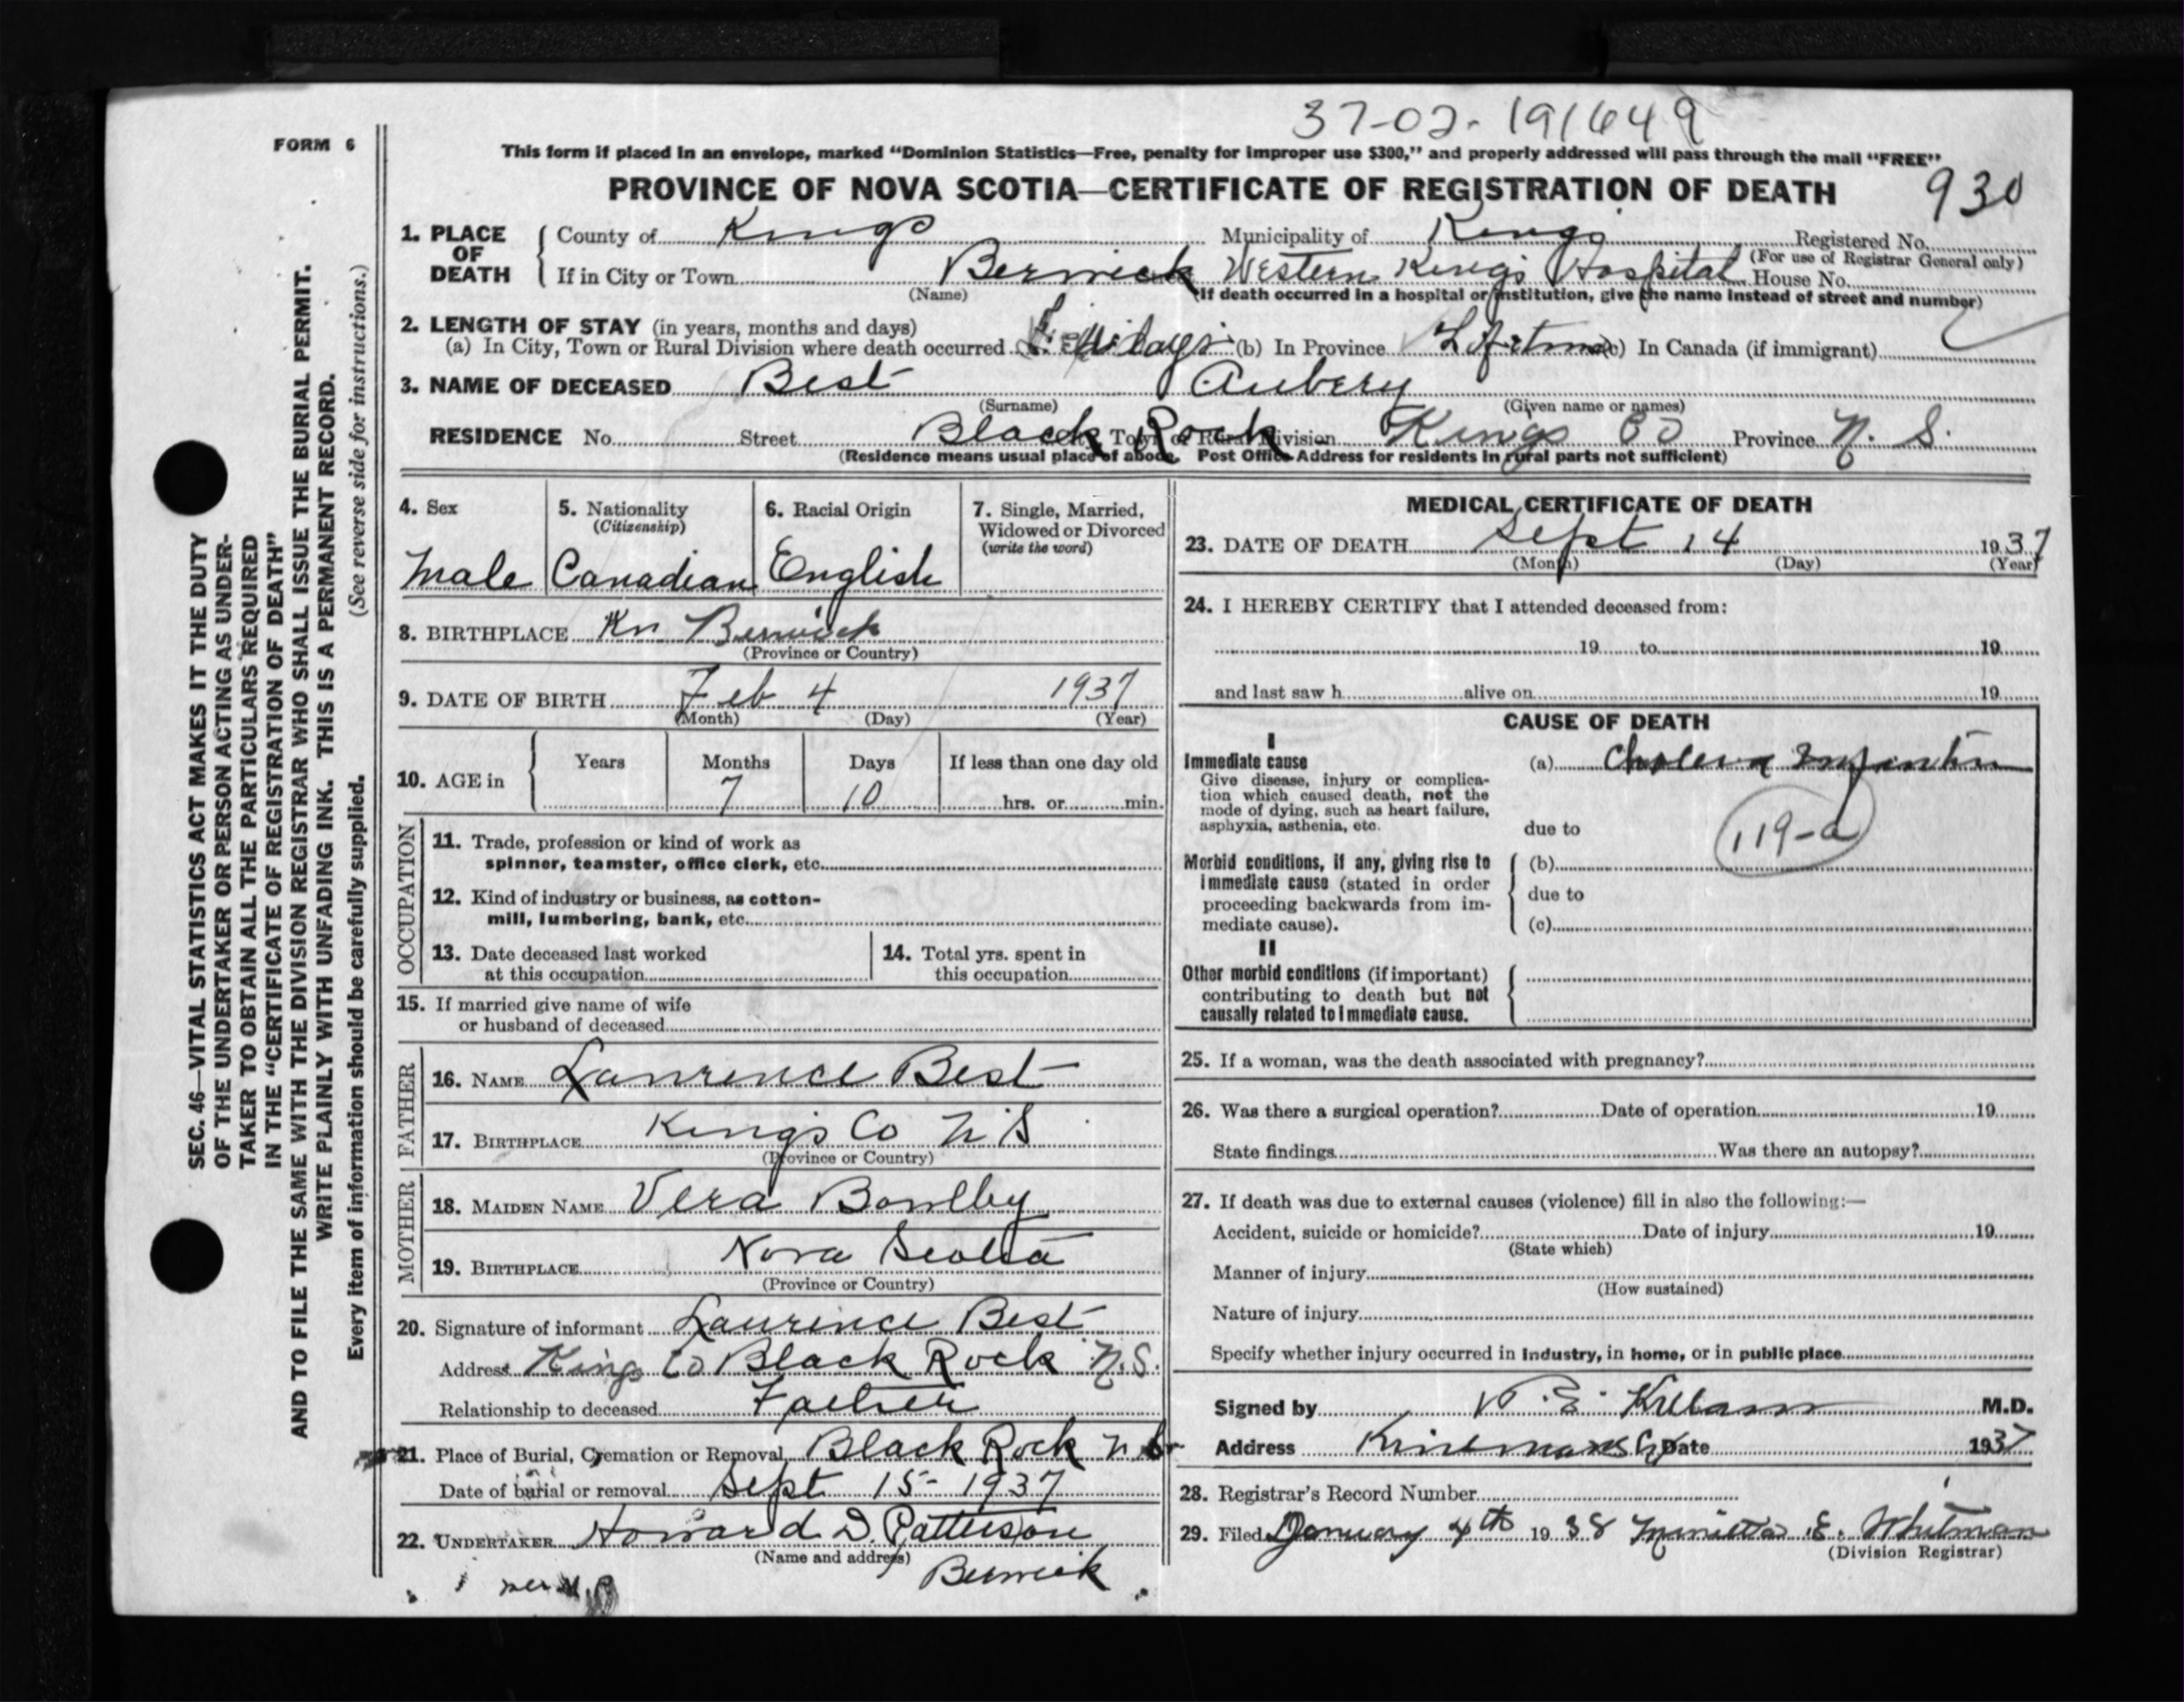 37-02-191649
FORM 6
This form if placed in an envelope, marked "Dominion Statistics—Free, penalty for improper use $300," and properly addressed will pass through the mail "FREE"
PROVINCE OF NOVA SCOTIA—CERTIFICATE OF REGISTRATION OF DEATH 930
1. PLACE OF DEATH
County of Kings Municipality of Kings Registered No.
(For use of Registrar General only)
If in City or Town Berwick Western Kings Hospital House No.
(Name) (If death occurred in a hospital or institution, give the name instead of street and number)
2. LENGTH OF STAY (in years, months and days)
(a) In City, Town or Rural Division where death occurred days (b) In Province Lifetime (c) In Canada (if immigrant)
3. NAME OF DECEASED Best Aubery
(Surname) (Given name or names)
RESIDENCE No. Street Black Rock Town or Rural Division Kings Co Province N. S.
(Residence means usual place of abode. Post Office Address for residents in rural parts not sufficient)
4. Sex
Male
5. Nationality
(Citizenship)
Canadian
6. Racial Origin
English
7. Single, Married,
Widowed or Divorced
(write the word)
8. BIRTHPLACE Berwick
(Province or Country)
9. DATE OF BIRTH Feb 4 1937
(Month) (Day) (Year)
10. AGE in
Years Months Days If less than one day old
7 10 hrs. or min.
OCCUPATION
11. Trade, profession or kind of work as
spinner, teamster, office clerk, etc.
12. Kind of industry or business, as cotton-
mill, lumbering, bank, etc.
13. Date deceased last worked
at this occupation
14. Total yrs. spent in
this occupation
15. If married give name of wife
or husband of deceased
FATHER
16. NAME Lawrence Best
17. BIRTHPLACE Kings Co N S
(Province or Country)
MOTHER
18. MAIDEN NAME Vera Bowlby
19. BIRTHPLACE Nova Scotia
(Province or Country)
20. Signature of informant Laurince Best
Address Kings Co Black Rock N.S.
Relationship to deceased Father
21. Place of Burial, Cremation or Removal Black Rock N S
Date of burial or removal Sept 15- 1937
22. UNDERTAKER Howard D. Patterson
(Name and address)
Berwick
MEDICAL CERTIFICATE OF DEATH
23. DATE OF DEATH Sept 14 1937
(Month) (Day) (Year)
24. I HEREBY CERTIFY that I attended deceased from:
19 to 19
and last saw h alive on 19
CAUSE OF DEATH
I
Immediate cause
Give disease, injury or complica-
tion which caused death, not the
mode of dying, such as heart failure,
asphyxia, asthenia, etc.
(a) Cholera Infantum
due to
119-a
Morbid conditions, if any, giving rise to
immediate cause (stated in order
proceeding backwards from im-
mediate cause).
(b)
due to
(c)
II
Other morbid conditions (if important)
contributing to death but not
causally related to immediate cause.
25. If a woman, was the death associated with pregnancy?
26. Was there a surgical operation? Date of operation 19
State findings Was there an autopsy?
27. If death was due to external causes (violence) fill in also the following:—
Accident, suicide or homicide? Date of injury 19
(State which)
Manner of injury
(How sustained)
Nature of injury
Specify whether injury occurred in industry, in home, or in public place
Signed by Killam M.D.
Address Date 1937
28. Registrar's Record Number
29. Filed January 4th 1938 E. Whitman
(Division Registrar)
SEC. 46—VITAL STATISTICS ACT MAKES IT THE DUTY
OF THE UNDERTAKER OR PERSON ACTING AS UNDER-
TAKER TO OBTAIN ALL THE PARTICULARS REQUIRED
IN THE "CERTIFICATE OF REGISTRATION OF DEATH"
AND TO FILE THE SAME WITH THE DIVISION REGISTRAR WHO SHALL ISSUE THE BURIAL PERMIT.
WRITE PLAINLY WITH UNFADING INK. THIS IS A PERMANENT RECORD.
Every item of information should be carefully supplied. (See reverse side for instructions.)